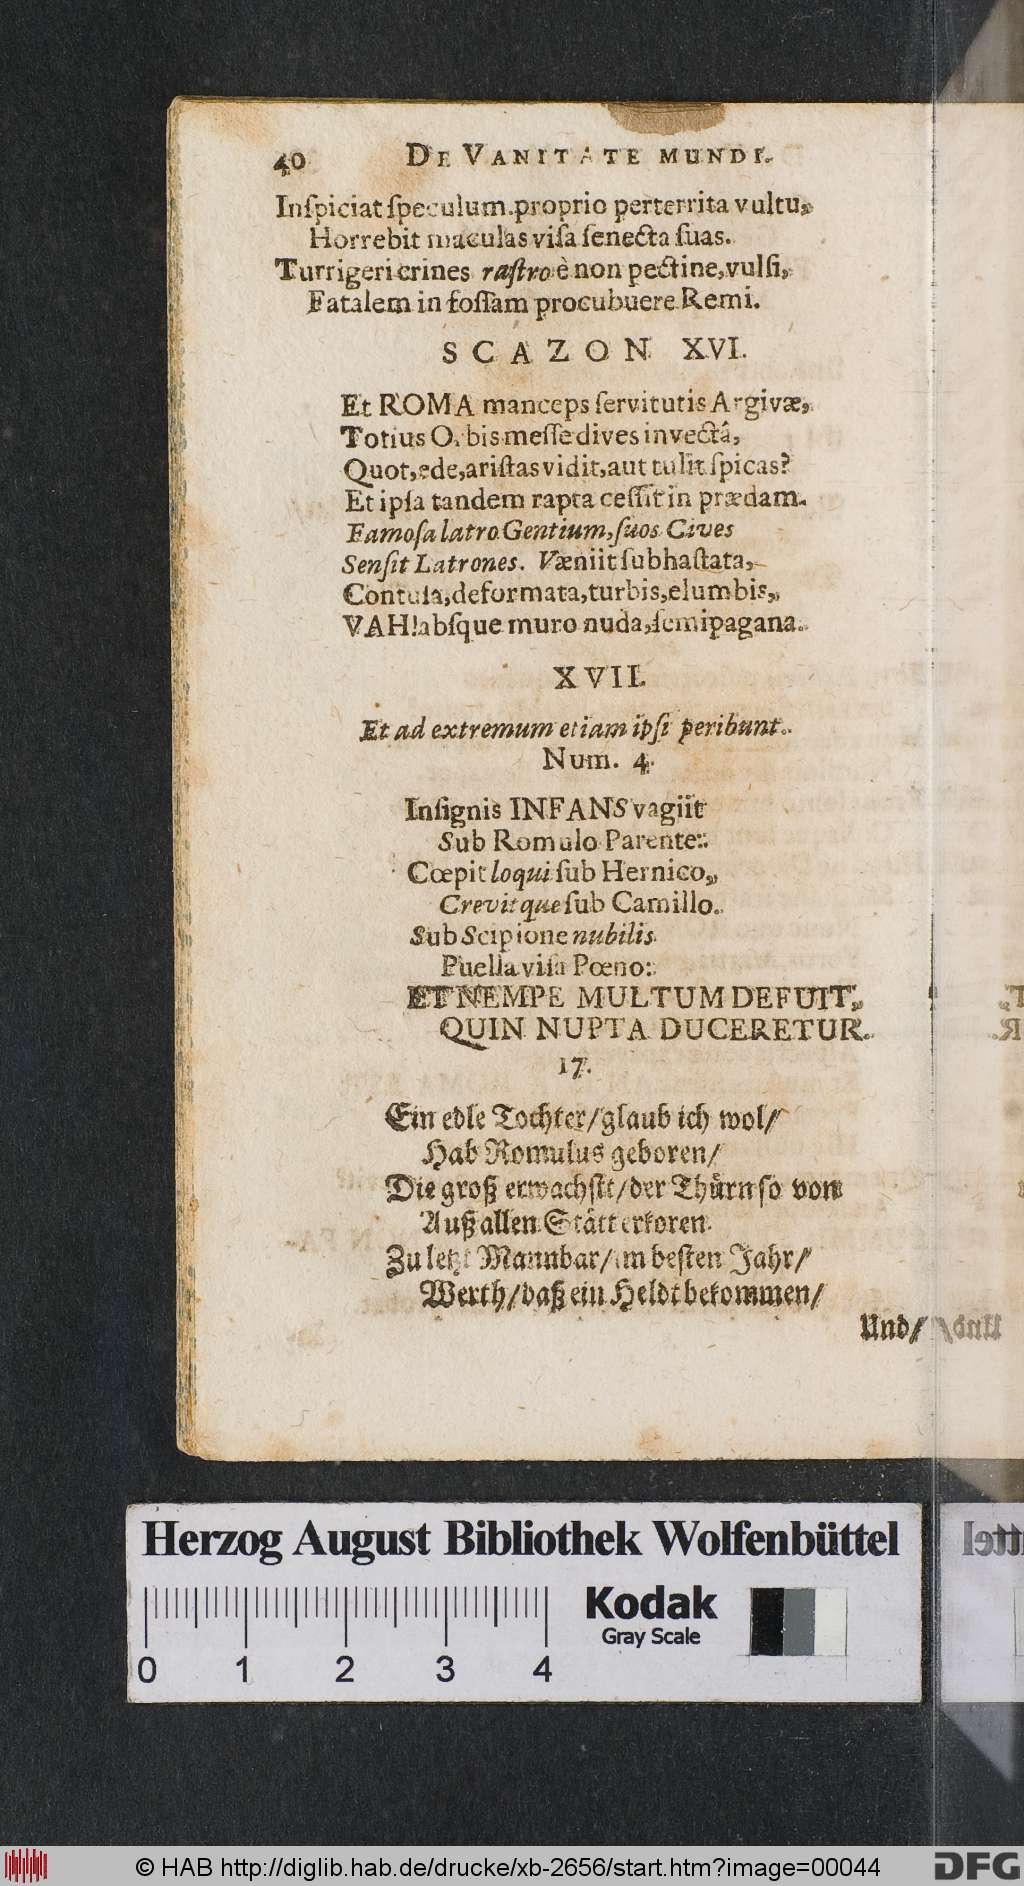 40 DE VANITATE MUNDI.
Inſpiciat ſpeculum proprio perterrita vultu,
Horrebit maculas viſa ſenecta ſuas.
Turrigeri crines raſtro è non pectine, vulſi,
Fatalem in foſſam procubuere Remi.
SCAZON XVI.
Et ROMA manceps ſervitutis Argivæ,
Totius Orbis meſſe dives invectâ,
Quot, ede, ariſtas vidit, aut tulit ſpicas?
Et ipſa tandem rapta ceſſit in prædam.
Famoſa latro Gentium, ſuos Cives
Senſit Latrones. Væniit ſubhaſtata,
Contuſa, deformata, turbis, elumbis,
VAH! abſque muro nuda, ſemipagana.
XVII.
Et ad extremum etiam ipſi peribunt.
Num. 4.
Inſignis INFANS vagiit
Sub Romulo Parente:
Cœpit loqui ſub Hernico,
Crevitque ſub Camillo.
Sub Scipione nubilis
Puella viſa Pœno:
ET NEMPE MULTUM DEFUIT,
QUIN NUPTA DUCERETUR.
17.
Ein edle Tochter/ glaub ich wol/
Hab Romulus geboren/
Die groß erwachſtt/ der Thürn ſo von
Auß allen Stätt erkoren.
Zu letzt Mannbar/ im beſten Jahr/
Werth/ daß ein Heldt bekommen/
Und/
Herzog August Bibliothek Wolfenbüttel
Kodak
Gray Scale
0 1 2 3 4
© HAB http://diglib.hab.de/drucke/xb-2656/start.htm?image=00044
DFG